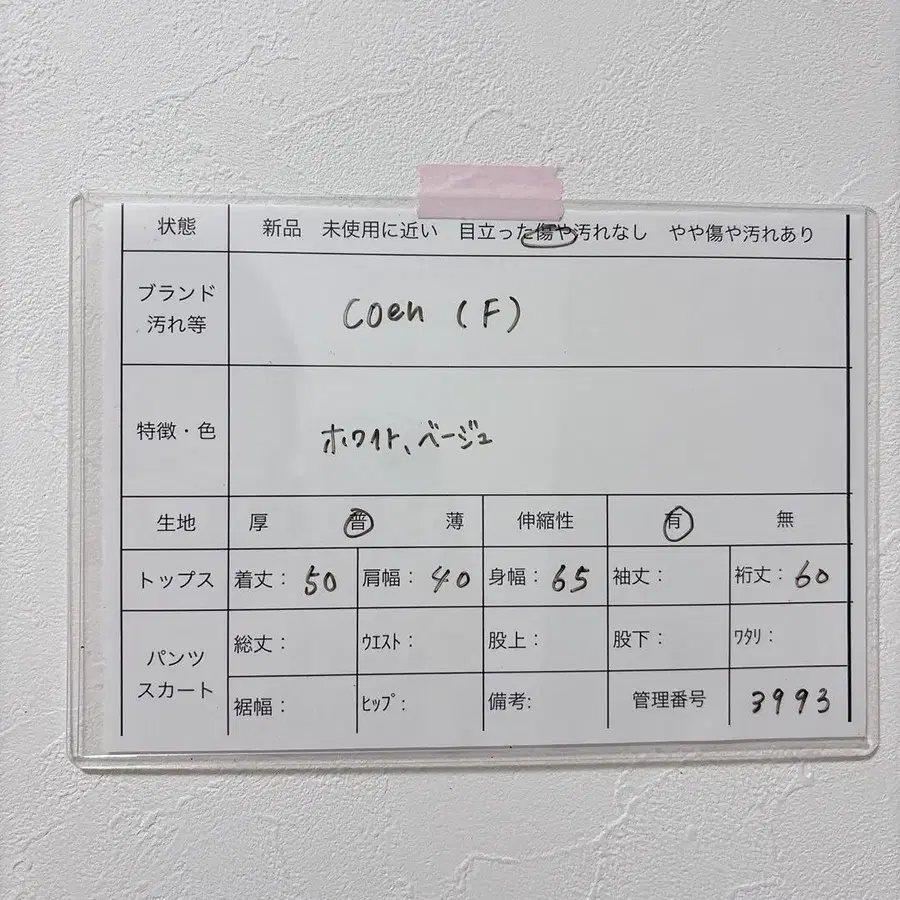 状態 新品 未使用に近い 目立った傷や汚れなし やや傷や汚れあり
ブランド
汚れ等
coen (F)
特徴・色 ホワイト、ベージュ
生地 厚 普 薄 伸縮性 有 無
トップス 着丈: 50 肩幅: 40 身幅: 65 袖丈: 裄丈: 60
パンツ
スカート
総丈: ウエスト: 股上: 股下: ワタリ:
裾幅: ヒップ: 備考: 管理番号 3993